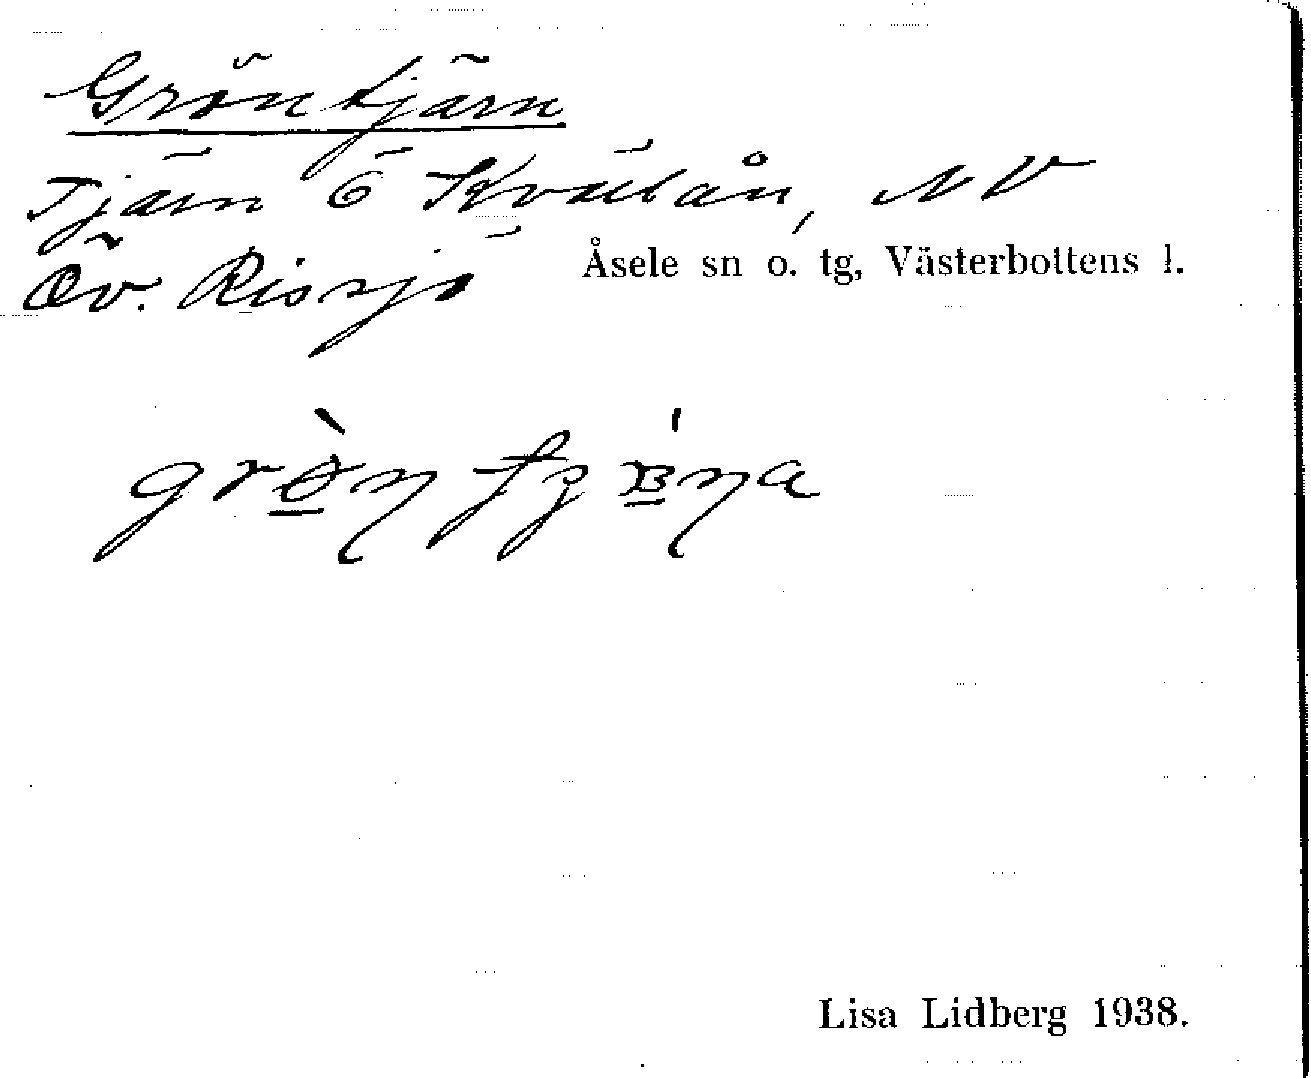 Gröntjärn
Tjärn Ö Kvällån, NV
Öv. Rissjö Åsele sn o. tg, Västerbottens l.
Lisa Lidberg 1938.